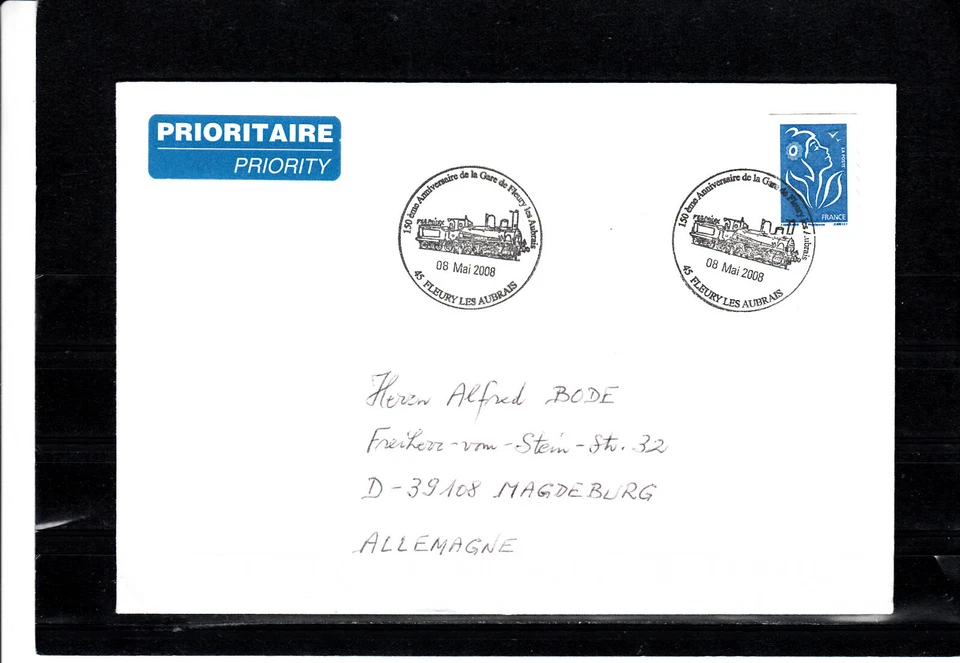 PRIORITAIRE
PRIORITY
150 ème Anniversaire de la Gare de Fleury les Aubrais
08 Mai 2008
45 FLEURY LES AUBRAIS
150 ème Anniversaire de la Gare de Fleury les Aubrais
08 Mai 2008
45 FLEURY LES AUBRAIS
LA POSTE
FRANCE
Herrn Alfred BODE
Freiherr-vom-Stein-Str. 32
D-39108 MAGDEBURG
ALLEMAGNE